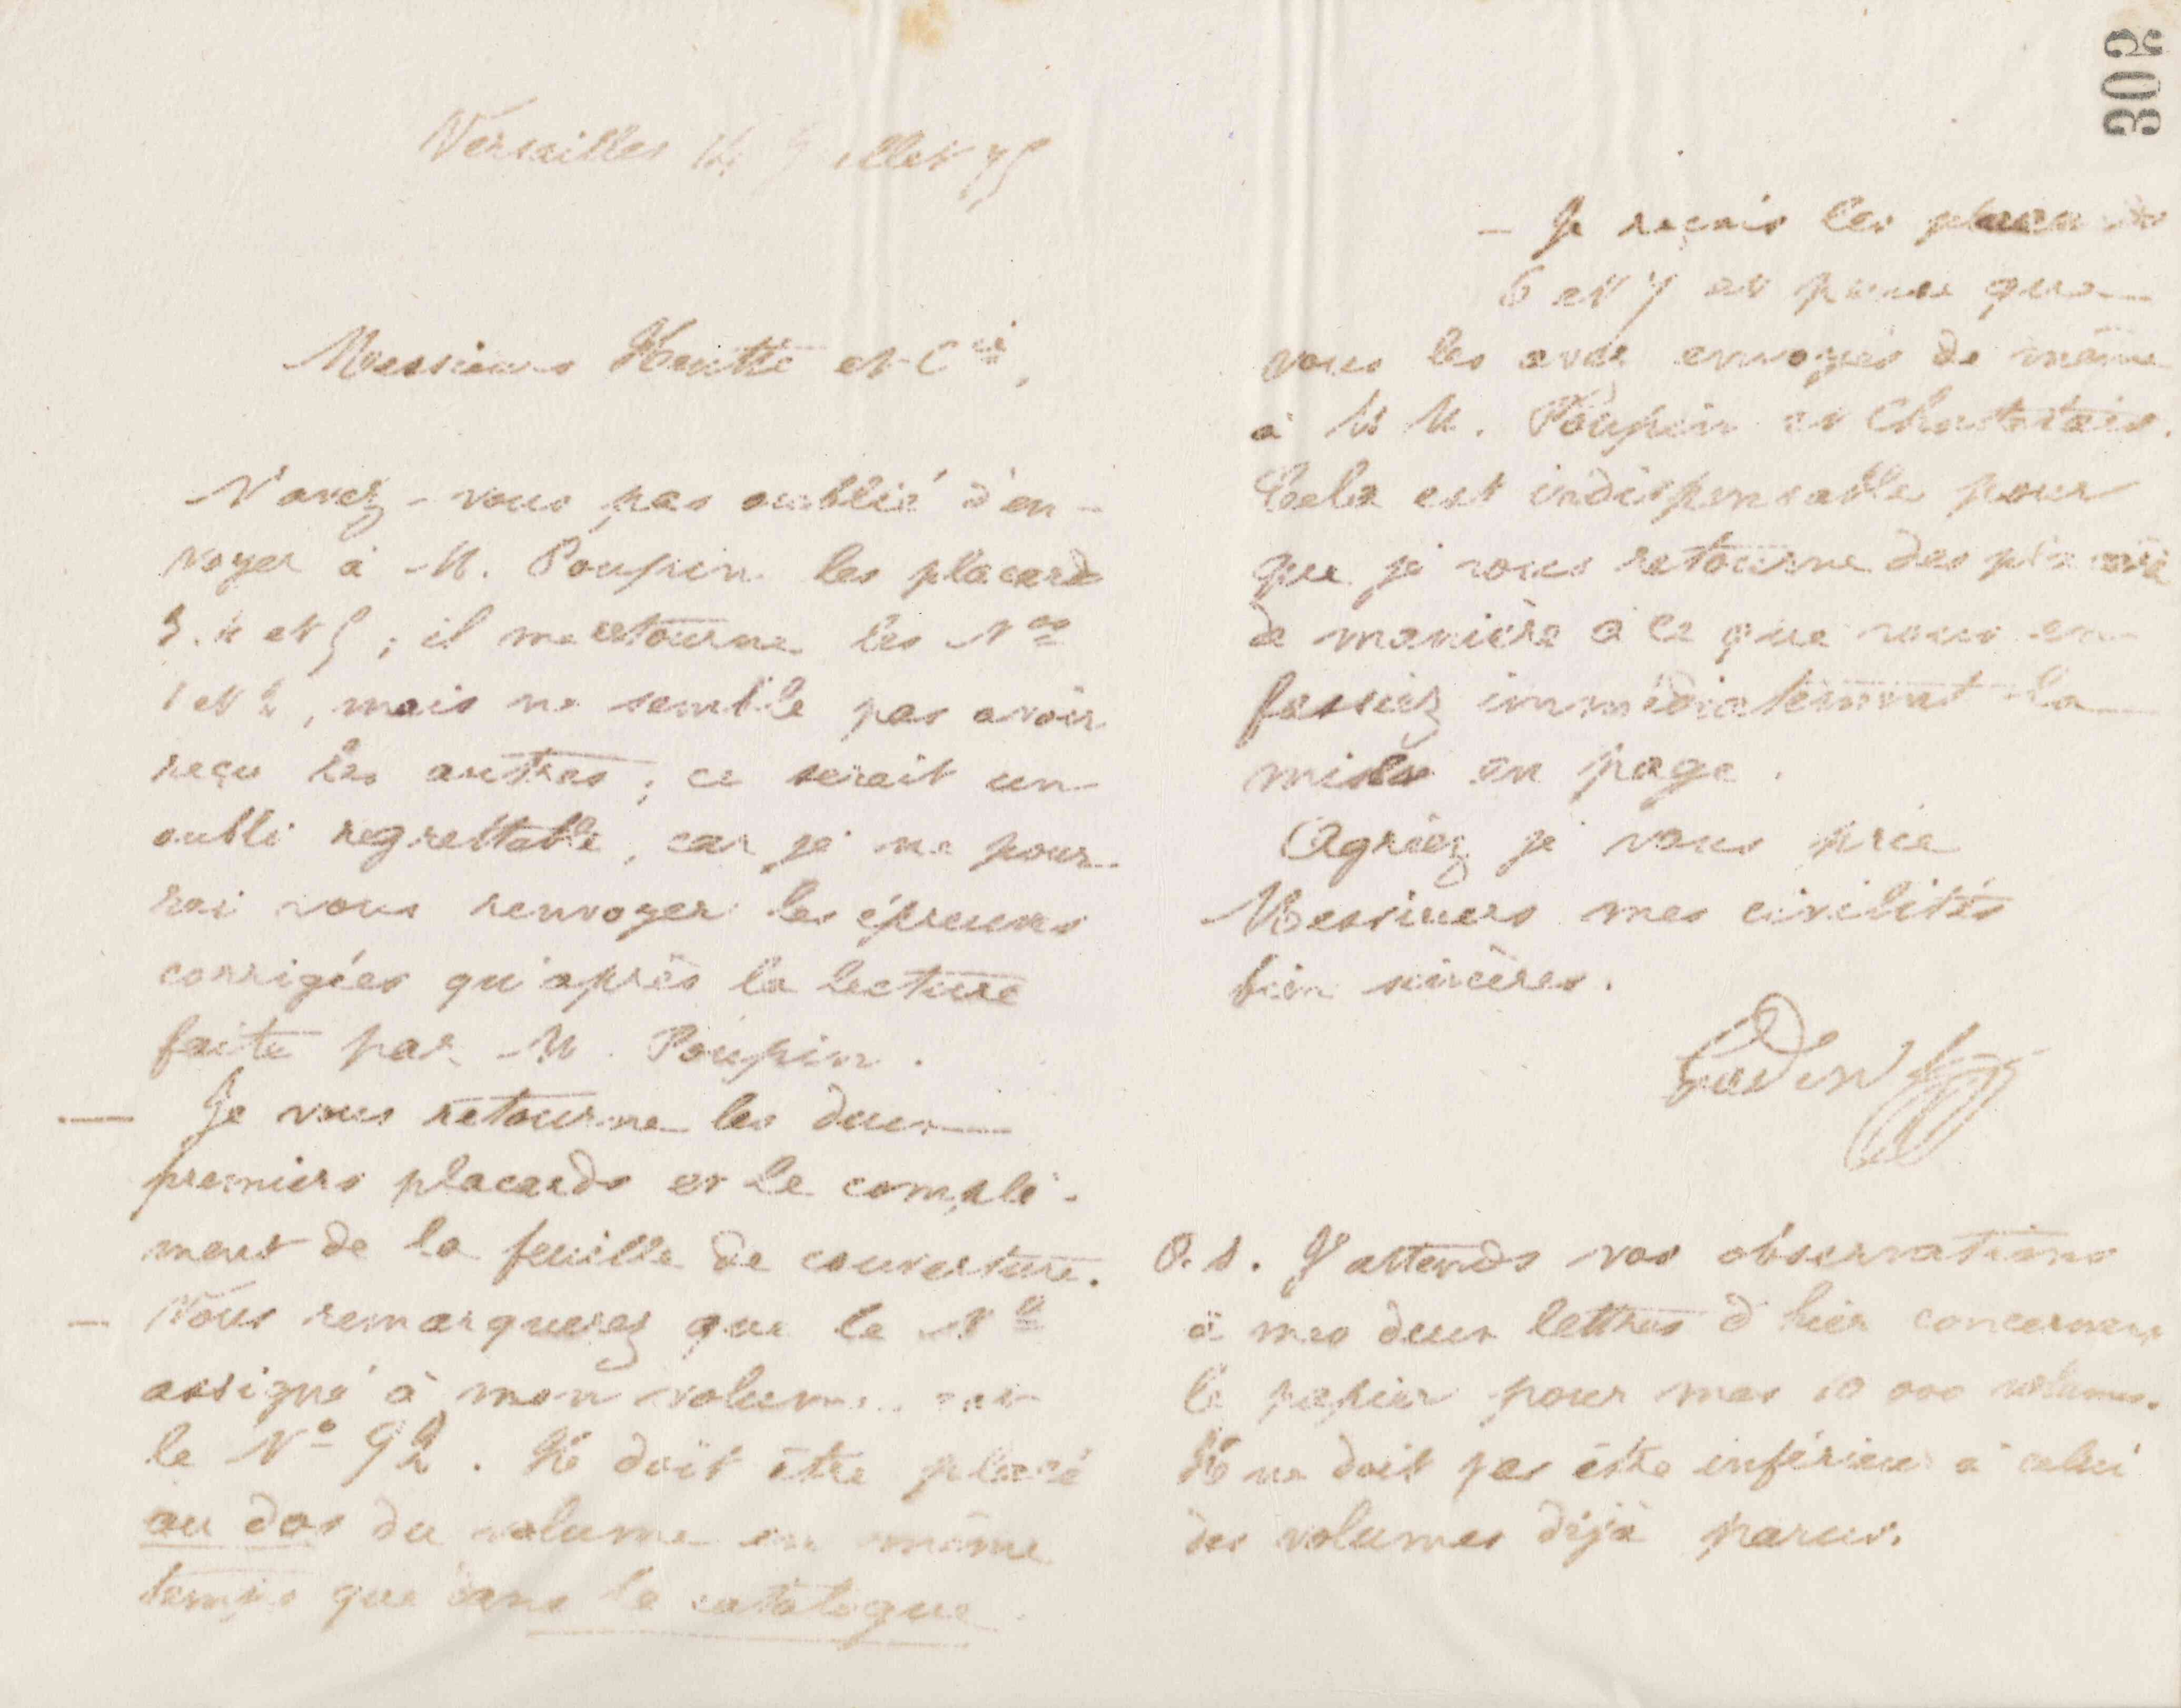 302
Versailles 14 Juillet 75
Messieurs et Cie,
N'avez-vous pas oublié d'en-
voyer à M. Poupin les placards
3. 4 et 5 ; il me retourne les Nos
1 et 2, mais ne semble pas avoir
reçu les autres ; ce serait un
oubli regrettable, car je ne pour-
rai vous renvoyer les épreuves
corrigées qu'après la lecture
faite par M. Poupin.
— Je vous retourne les deux
premiers placards et le complé-
ment de la feuille de couverture.
— Vous remarquerez que le No
assigné à mon volume est
le No 92. Il doit être placé
au dos du volume en même
temps que dans le catalogue
— Je reçois les placards
6 et 7 et pense que
vous les avez envoyés de même
à M M. Poupin et
Cela est indispensable pour
que je vous retourne des placards
de manière à ce que vous en
fassiez immédiatement la
mise en page.
Agréez je vous prie
Messieurs mes civilités
bien sincères.
Godin
P. S. J'attends vos observations
à mes deux lettres d'hier concernant
le papier pour mes 10 000 volumes.
Il ne doit pas être inférieur à celui
des volumes déjà parus.